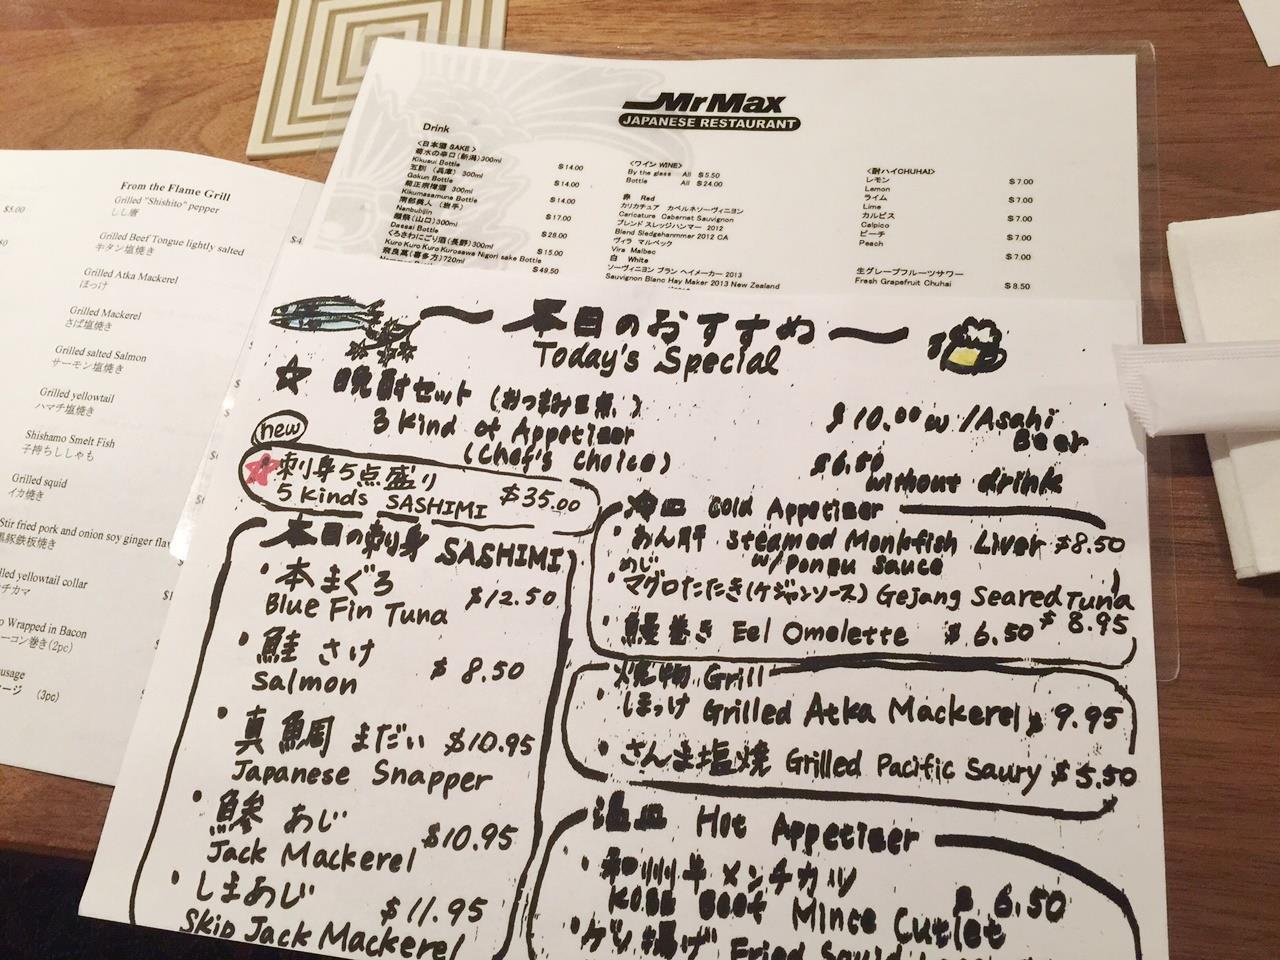 $5.00
From the Flame Grill
Grilled "Shishito" pepper
しし唐
Grilled Beef Tongue lightly salted
牛タン塩焼き
Grilled Atka Mackerel
ほっけ
Grilled Mackerel
さば塩焼き
Grilled salted Salmon
サーモン塩焼き
Grilled yellowtail
ハマチ塩焼き
Shishamo Smelt Fish
子持ちししゃも
Grilled squid
イカ焼き
Stir fried pork and onion soy ginger
黒豚鉄板焼き
yellowtail collar
チカマ
Wrapped in Bacon
ーコン巻き(2pc)
usage
ージ (3pc)
MrMax
JAPANESE RESTAURANT
Drink
<日本酒 SAKE>
菊水の辛口(新潟)300ml
Kikusui Bottle $14.00
五釧 (兵庫) 300ml
Gokun Bottle $14.00
菊正宗樽酒 300ml
Kikumasamune Bottle $14.00
南部美人 (岩手)
Nanbubijin $17.00
獺祭(山口)300ml
Dassai Bottle $28.00
くろさわにごり酒(長野)300ml
Kuro Kuro Kuro Kurosawa Nigori sake Bottle $15.00
(喜多方)720ml
$49.50
<ワイン WINE>
By the glass All $5.50
Bottle All $24.00
赤 Red
カリカチュア カベルネソーヴィニヨン
Caricature Cabernet Sauvignon
ブレンド スレッジハンマー 2012
Blend Sledgehammmer 2012 CA
ヴィラ マルベック
Vira Malbec
白 White
ソーヴィニヨン ブラン ヘイメーカー 2013
Sauvignon Blanc Hay Maker 2013 New Zealand
<酎ハイCHUHAI>
レモン $7.00
Lemon
ライム $7.00
Lime
カルピス $7.00
Calpico
ピーチ $7.00
Peach
生グレープフルーツサワー
Fresh Grapefruit Chuhai $8.50
〜本日のおすすめ〜
Today's Special
☆ 晩酌セット (おつまみ三点)
3 Kind of Appetizer
(Chef's Choice)
$10.00 w/Asahi
Beer
$6.50
without drink
new
☆刺身5点盛り
5 kinds SASHIMI $35.00
本日の刺身 SASHIMI
・本まぐろ
Blue Fin Tuna $12.50
・鮭 さけ
Salmon $8.50
・真鯛 まだい $10.95
Japanese Snapper
・鯵 あじ
Jack Mackerel $10.95
・しまあじ
Skip Jack Mackerel $11.95
冷皿 Cold Appetizer
・あん肝 Steamed Monkfish Liver $8.50
w/Ponzu sauce
めじ
・マグロたたき(ケジャンソース) Gejang Seared Tuna
$8.95
・鰻巻き Eel Omelette $6.50
焼物 Grill
・ほっけ Grilled Atka Mackerel $9.95
・さんま塩焼 Grilled Pacific Saury $5.50
温皿 Hot Appetizer
・和州牛メンチカツ
KOBE Beef Mince Cutlet $6.50
・ゲソ揚げ Fried Squid